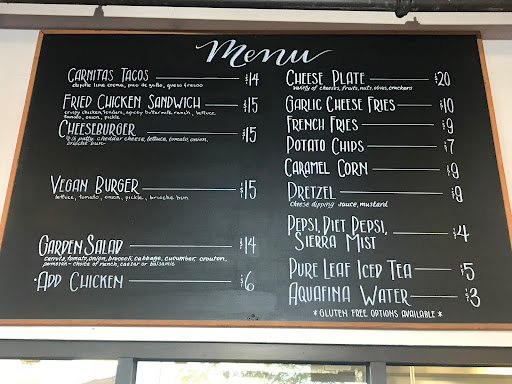 Menu
Carnitas Tacos $14
chipotle lime crema, pico de gallo, queso fresco
Fried Chicken Sandwich $15
crispy chicken tenders, spicy buttermilk ranch, lettuce,
tomato, onion, pickle
Cheeseburger $15
patty, cheddar cheese, lettuce, tomato, onion,
brioche bun
Vegan Burger $15
lettuce, tomato, onion, pickle, brioche bun
Garden Salad $14
carrots, tomato, onion, broccoli, cabbage, cucumber, crouton,
parmesan - choice of ranch, caesar or balsamic
·Add Chicken $6
Cheese Plate $20
variety of cheeses, fruits, nuts, olives, crackers
Garlic Cheese Fries $10
French Fries $9
Potato Chips $7
Caramel Corn $9
Pretzel $9
cheese dipping sauce, mustard
Pepsi, Diet Pepsi,
Sierra Mist $4
Pure Leaf Iced Tea $5
Aquafina Water $3
*Gluten Free Options Available*